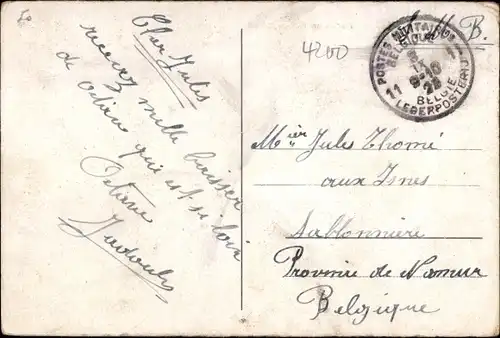 Cher Jules
recevez mille baisser
de octavie qui est si loin
Octavie
4200
S. M. B.
POSTES MILITAIRES
BELGIQUE
IX
9-10
11 11
BELGIE
LEGERPOSTERIJ
Mier Jules Thomé
aux Isnes
Sablonnière
Province de Namur
Belgique